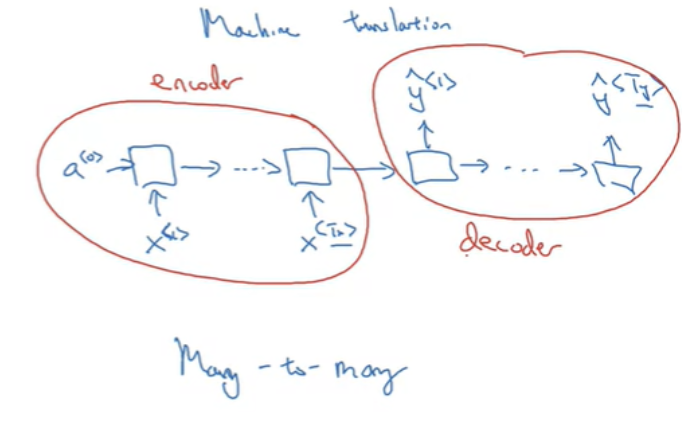 Machine translation
encoder
ŷ<1>
ŷ<Ty>
a<0>
....
...
x<1>
x<Tx>
decoder
Many-to-many